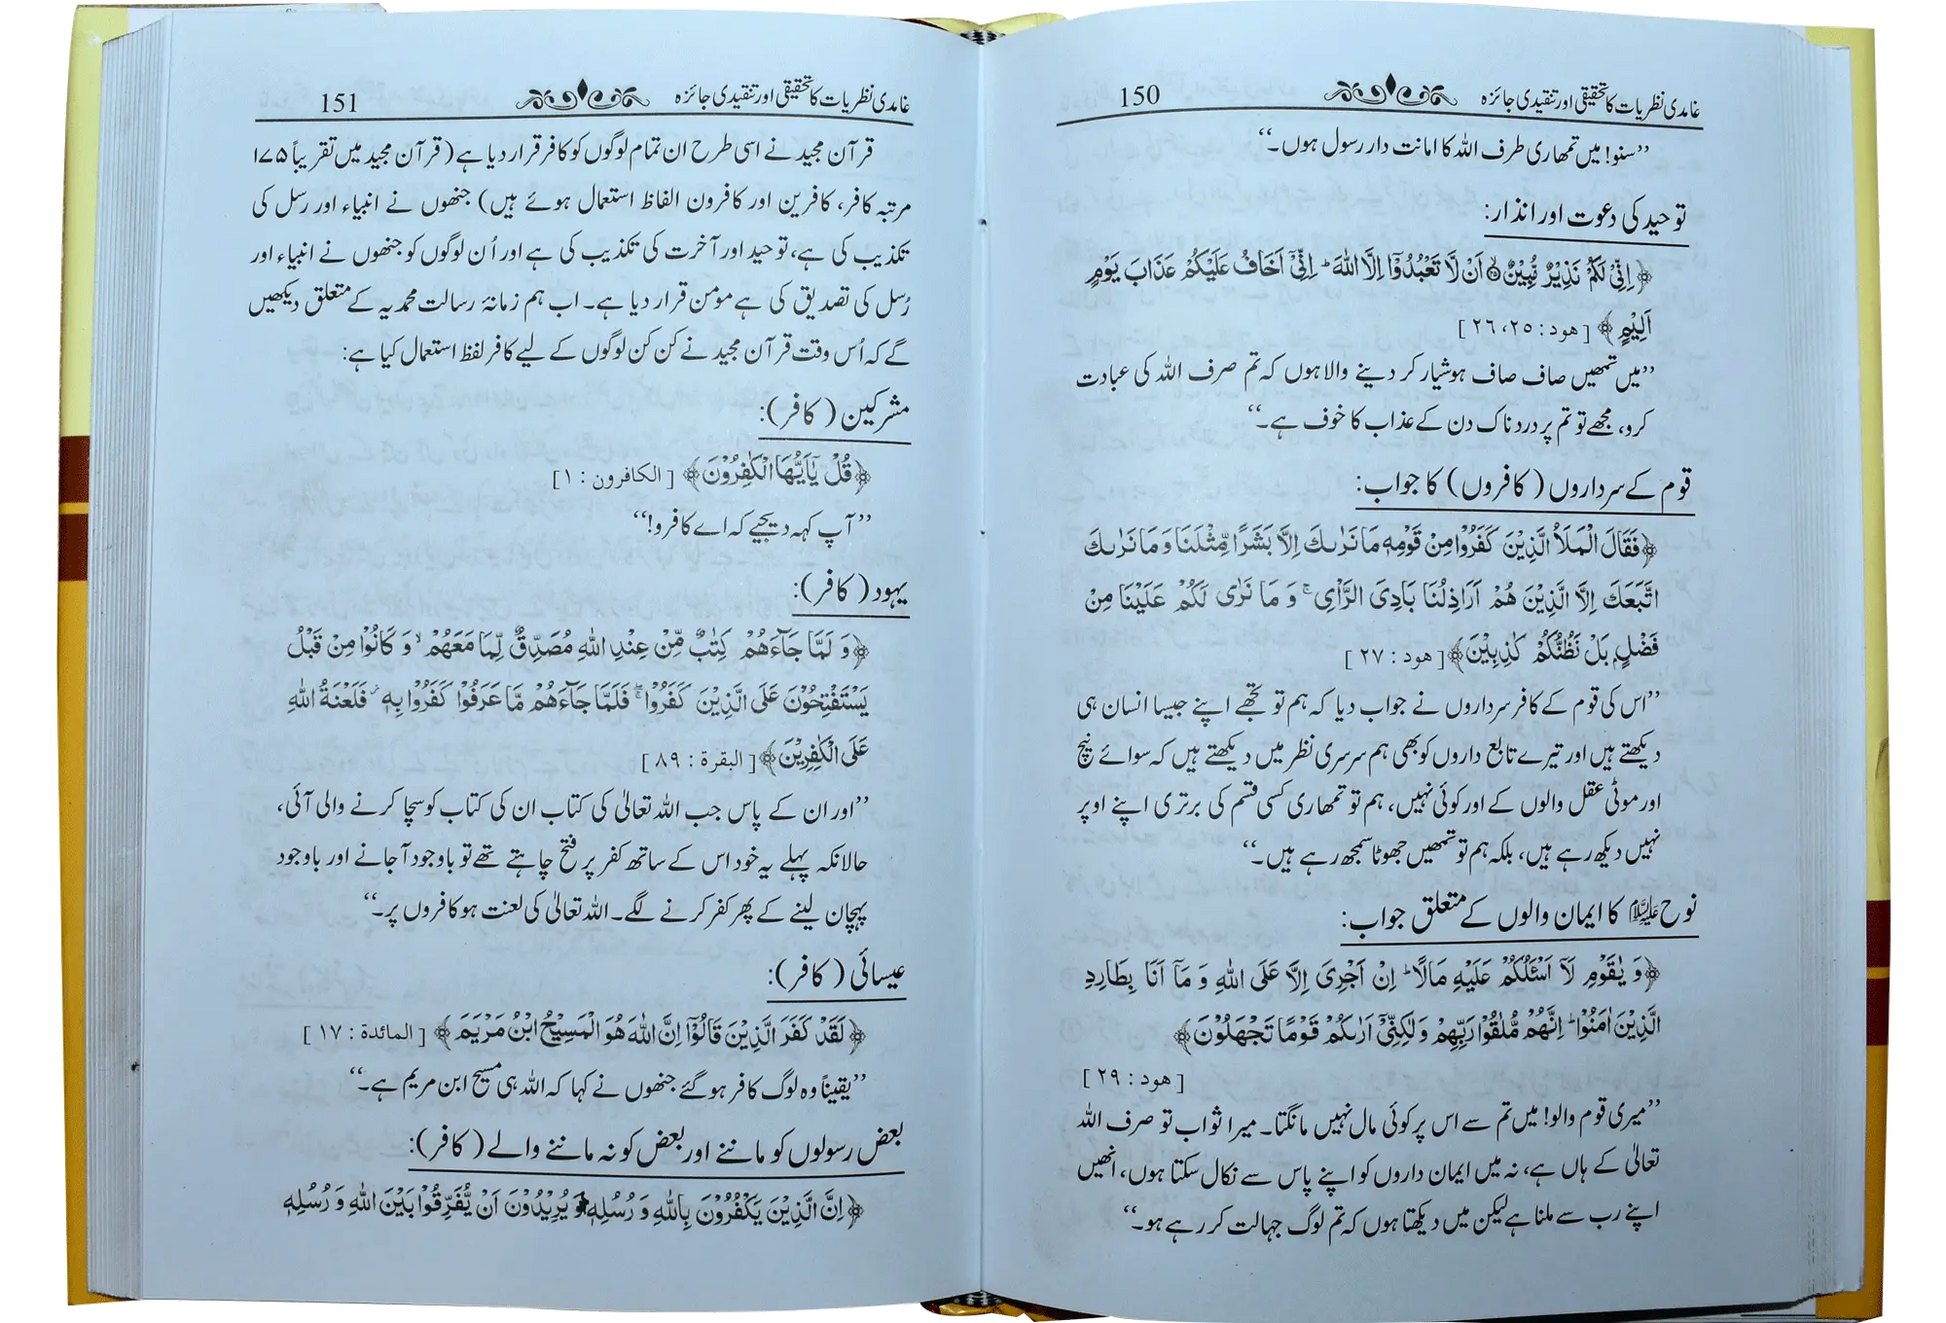 غامدی نظریات کا تحقیقی اور تنقیدی جائزہ 150
’’سنو! میں تمھاری طرف اللہ کا امانت دار رسول ہوں۔‘‘
توحید کی دعوت اور انذار:
﴿اِنِّیْ لَکُمْ نَذِیْرٌ مُّبِیْنٌ ۙ اَنْ لَّا تَعْبُدُوْٓا اِلَّا اللّٰہَ ؕ اِنِّیْٓ اَخَافُ عَلَیْکُمْ عَذَابَ یَوْمٍ
اَلِیْمٍ﴾ [ھود: ۲۵، ۲۶]
’’میں تمھیں صاف صاف ہوشیار کر دینے والا ہوں کہ تم صرف اللہ کی عبادت
کرو، مجھے تو تم پر دردناک دن کے عذاب کا خوف ہے۔‘‘
قوم کے سرداروں (کافروں) کا جواب:
﴿فَقَالَ الْمَلَاُ الَّذِیْنَ کَفَرُوْا مِنْ قَوْمِہٖ مَا نَرٰىکَ اِلَّا بَشَرًا مِّثْلَنَا وَ مَا نَرٰىکَ
اتَّبَعَکَ اِلَّا الَّذِیْنَ ھُمْ اَرَاذِلُنَا بَادِیَ الرَّاْیِ ۚ وَ مَا نَرٰی لَکُمْ عَلَیْنَا مِنْ
فَضْلٍۭ بَلْ نَظُنُّکُمْ کٰذِبِیْنَ﴾ [ھود: ۲۷]
’’اس کی قوم کے کافر سرداروں نے جواب دیا کہ ہم تو تجھے اپنے جیسا انسان ہی
دیکھتے ہیں اور تیرے تابع داروں کو بھی ہم سرسری نظر میں دیکھتے ہیں کہ سوائے نیچ
اور موٹی عقل والوں کے اور کوئی نہیں، ہم تو تمھاری کسی قسم کی برتری اپنے اوپر
نہیں دیکھ رہے ہیں، بلکہ ہم تو تمھیں جھوٹا سمجھ رہے ہیں۔‘‘
نوح علیہ السلام کا ایمان والوں کے متعلق جواب:
﴿وَ یٰقَوْمِ لَآ اَسْئَلُکُمْ عَلَیْہِ مَالًا ؕ اِنْ اَجْرِیَ اِلَّا عَلَی اللّٰہِ وَ مَآ اَنَا بِطَارِدِ
الَّذِیْنَ اٰمَنُوْا ؕ اِنَّھُمْ مُّلٰقُوْا رَبِّھِمْ وَ لٰکِنِّیْٓ اَرٰىکُمْ قَوْمًا تَجْھَلُوْنَ﴾
[ھود: ۲۹]
’’میری قوم والو! میں تم سے اس پر کوئی مال نہیں مانگتا۔ میرا ثواب تو صرف اللہ
تعالیٰ کے ہاں ہے، نہ میں ایمان داروں کو اپنے پاس سے نکال سکتا ہوں، انھیں
اپنے رب سے ملنا ہے لیکن میں دیکھتا ہوں کہ تم لوگ جہالت کر رہے ہو۔‘‘
غامدی نظریات کا تحقیقی اور تنقیدی جائزہ 151
قرآن مجید نے اسی طرح ان تمام لوگوں کو کافر قرار دیا ہے (قرآن مجید میں تقریباً ۱۷۵
مرتبہ کافر، کافرین اور کافرون الفاظ استعمال ہوئے ہیں) جنھوں نے انبیاء اور رسل کی
تکذیب کی ہے، توحید اور آخرت کی تکذیب کی ہے اور اُن لوگوں کو جنھوں نے انبیاء اور
رُسل کی تصدیق کی ہے مومن قرار دیا ہے۔ اب ہم زمانۂ رسالت محمدیہ کے متعلق دیکھیں
گے کہ اُس وقت قرآن مجید نے کن کن لوگوں کے لیے کافر لفظ استعمال کیا ہے:
مشرکین (کافر):
﴿قُلْ یٰٓاَیُّھَا الْکٰفِرُوْنَ﴾ [الکافرون: ۱]
’’آپ کہہ دیجیے کہ اے کافرو!‘‘
یہود (کافر):
﴿وَ لَمَّا جَآءَھُمْ کِتٰبٌ مِّنْ عِنْدِ اللّٰہِ مُصَدِّقٌ لِّمَا مَعَھُمْ ۙ وَ کَانُوْا مِنْ قَبْلُ
یَسْتَفْتِحُوْنَ عَلَی الَّذِیْنَ کَفَرُوْا ۚ فَلَمَّا جَآءَھُمْ مَّا عَرَفُوْا کَفَرُوْا بِہٖ ؗ فَلَعْنَۃُ اللّٰہِ
عَلَی الْکٰفِرِیْنَ﴾ [البقرۃ: ۸۹]
’’اور ان کے پاس جب اللہ تعالیٰ کی کتاب ان کی کتاب کو سچا کرنے والی آئی،
حالانکہ پہلے یہ خود اس کے ساتھ کفر پر فتح چاہتے تھے تو باوجود آجانے اور باوجود
پہچان لینے کے پھر کفر کرنے لگے۔ اللہ تعالیٰ کی لعنت ہو کافروں پر۔‘‘
عیسائی (کافر):
﴿لَقَدْ کَفَرَ الَّذِیْنَ قَالُوْٓا اِنَّ اللّٰہَ ھُوَ الْمَسِیْحُ ابْنُ مَرْیَمَ﴾ [المائدۃ: ۱۷]
’’یقیناً وہ لوگ کافر ہوگئے جنھوں نے کہا کہ اللہ ہی مسیح ابن مریم ہے۔‘‘
بعض رسولوں کو ماننے اور بعض کو نہ ماننے والے (کافر):
﴿اِنَّ الَّذِیْنَ یَکْفُرُوْنَ بِاللّٰہِ وَ رُسُلِہٖ وَ یُرِیْدُوْنَ اَنْ یُّفَرِّقُوْا بَیْنَ اللّٰہِ وَ رُسُلِہٖ